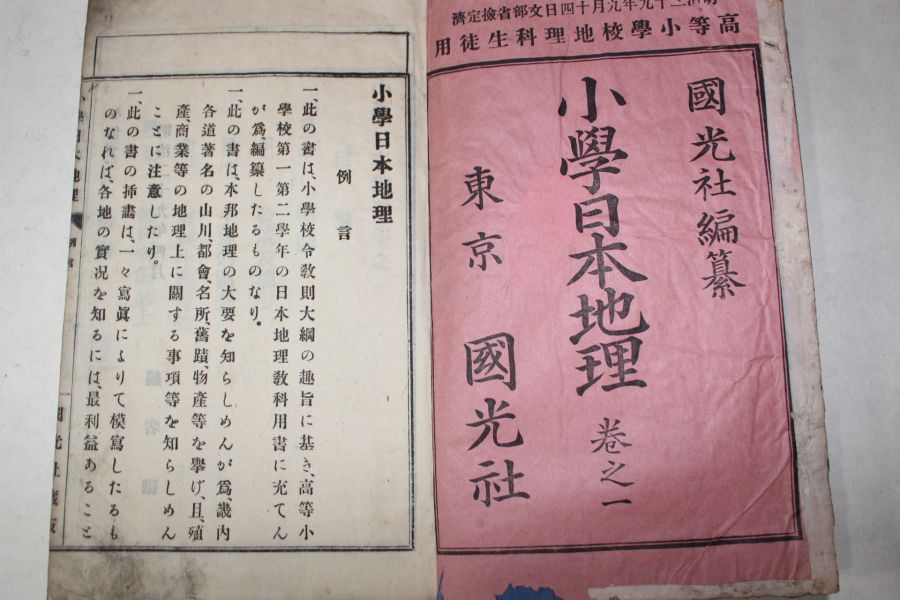 明治二十九年九月十四日文部省檢定濟
高等小學校地理科生徒用
國光社編纂
小學日本地理 卷之一
東京 國光社
小學日本地理
例言
一、此の書は、小學校令敎則大綱の趣旨に基き、高等小
學校第一第二學年の日本地理敎科用書に充てん
が爲、編纂したるものなり。
一、此の書は、本邦地理の大要を知らしめんが爲、畿内
各道著名の山川、都會、名所、舊蹟、物產等を擧げ、且、殖
產、商業等の地理上に關する事項等を知らしめん
ことに注意したり。
一、此の書の挿畵は、一々寫眞によりて模寫したるも
のなれば、各地の實況を知るには、最利益あること
小學日本地理 例言
國光社藏版